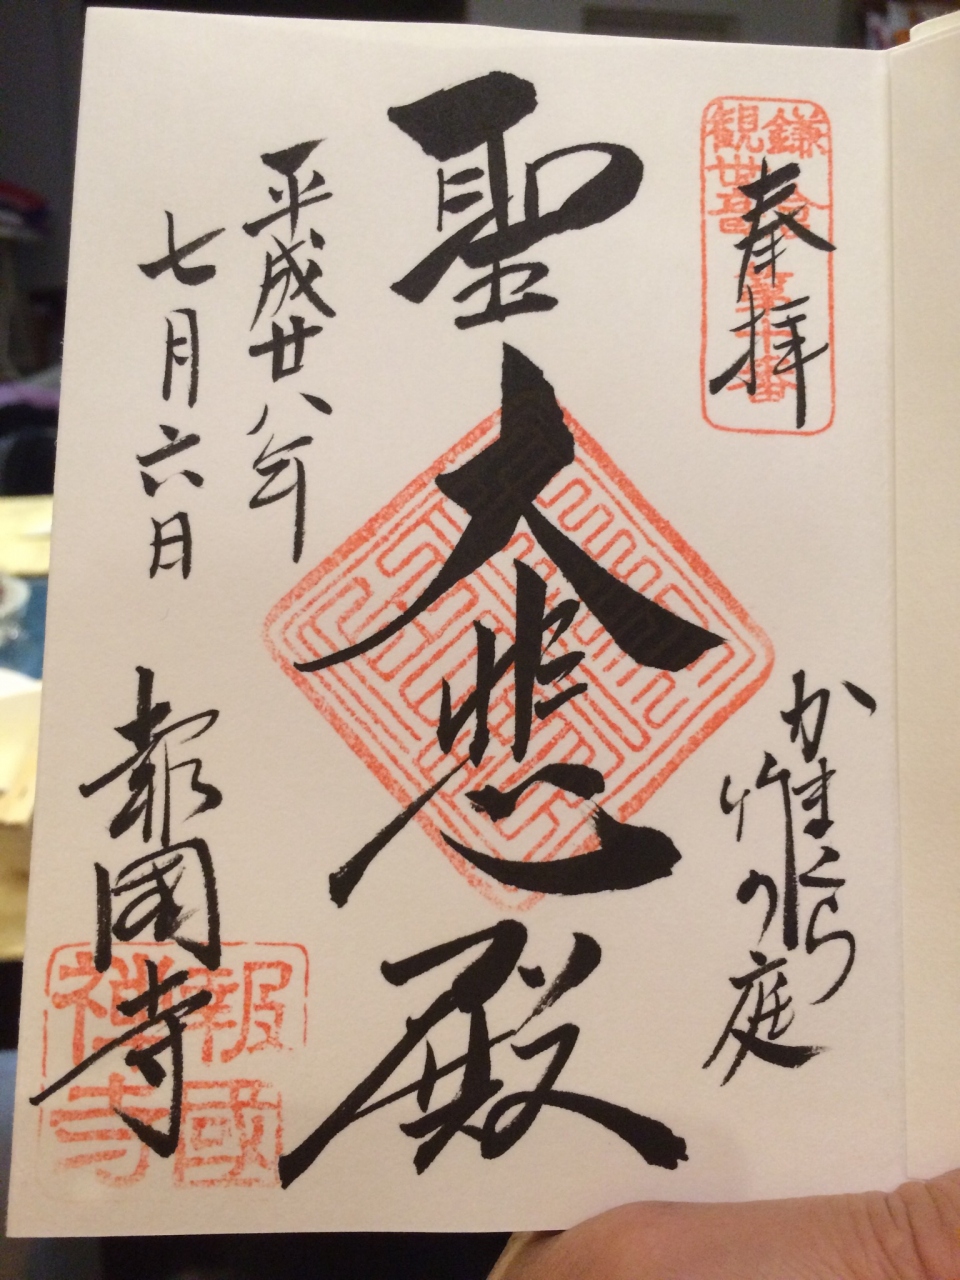 奉拝
鎌倉
観世音
第十番
かまくら
竹の庭
聖大悲殿
平成廿八年
七月六日
報國寺
報國
禅寺